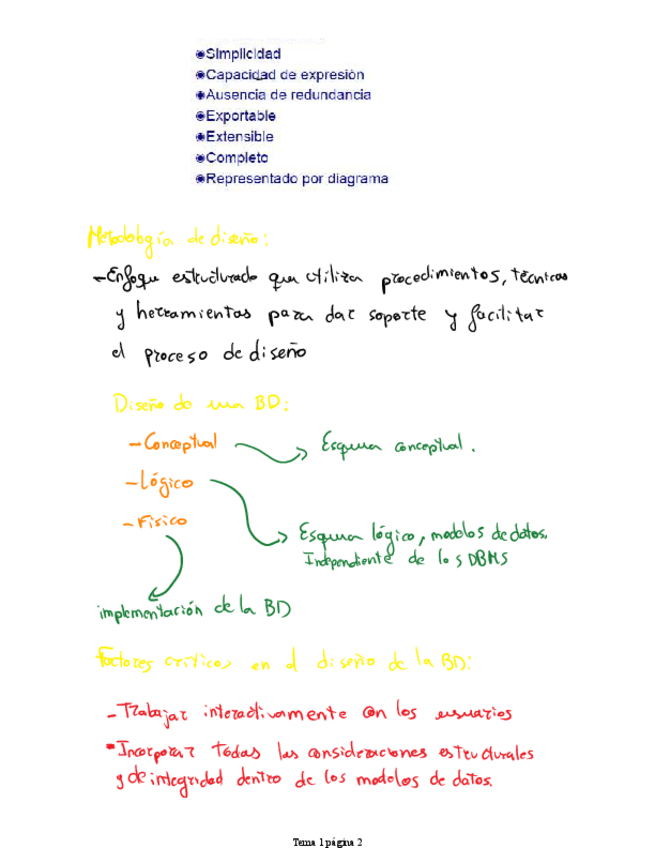 Simplicidad
Capacidad de expresión
Ausencia de redundancia
Exportable
Extensible
Completo
Representado por diagrama
Metodología de diseño:
-Enfoque estructurado que utiliza procedimientos, técnicas
y herramientas para dar soporte y facilitar
el proceso de diseño
Diseño de una BD:
-Conceptual
Esquema conceptual.
-Lógico
-Físico
Esquema lógico, modelos de datos.
Independiente de los DBMS
implementación de la BD
Factores críticos en el diseño de la BD:
-Trabajar interactivamente con los usuarios
-Incorporar todas las consideraciones estructurales
y de integridad dentro de los modelos de datos.
Tema 1 página 2